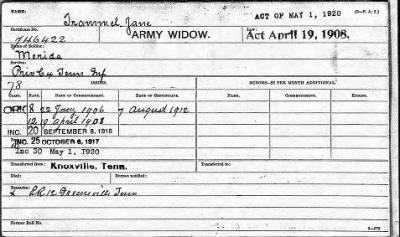 NAME: Trammel, Jane ACT OF MAY 1, 1920
Certificate No. 746422 ARMY WIDOW. Law: Act April 19, 1908.
Name of Soldier: Merida
Service: Priv Co Tenn Inf
CLASS. RATE. DATE OF COMMENCEMENT. DATE OF CERTIFICATE. MINORS—$2 PER MONTH ADDITIONAL.
8 22 1906 7 August 1912
12 19 April 1908
INC. 20 SEPTEMBER 8, 1916
INC. 25 OCTOBER 6, 1917
Inc 30 May 1, 1920
Transferred from: Knoxville, Tenn. Transferred to:
Died: Bureau notified:
Remarks: Greeneville Tenn
Former Roll No.